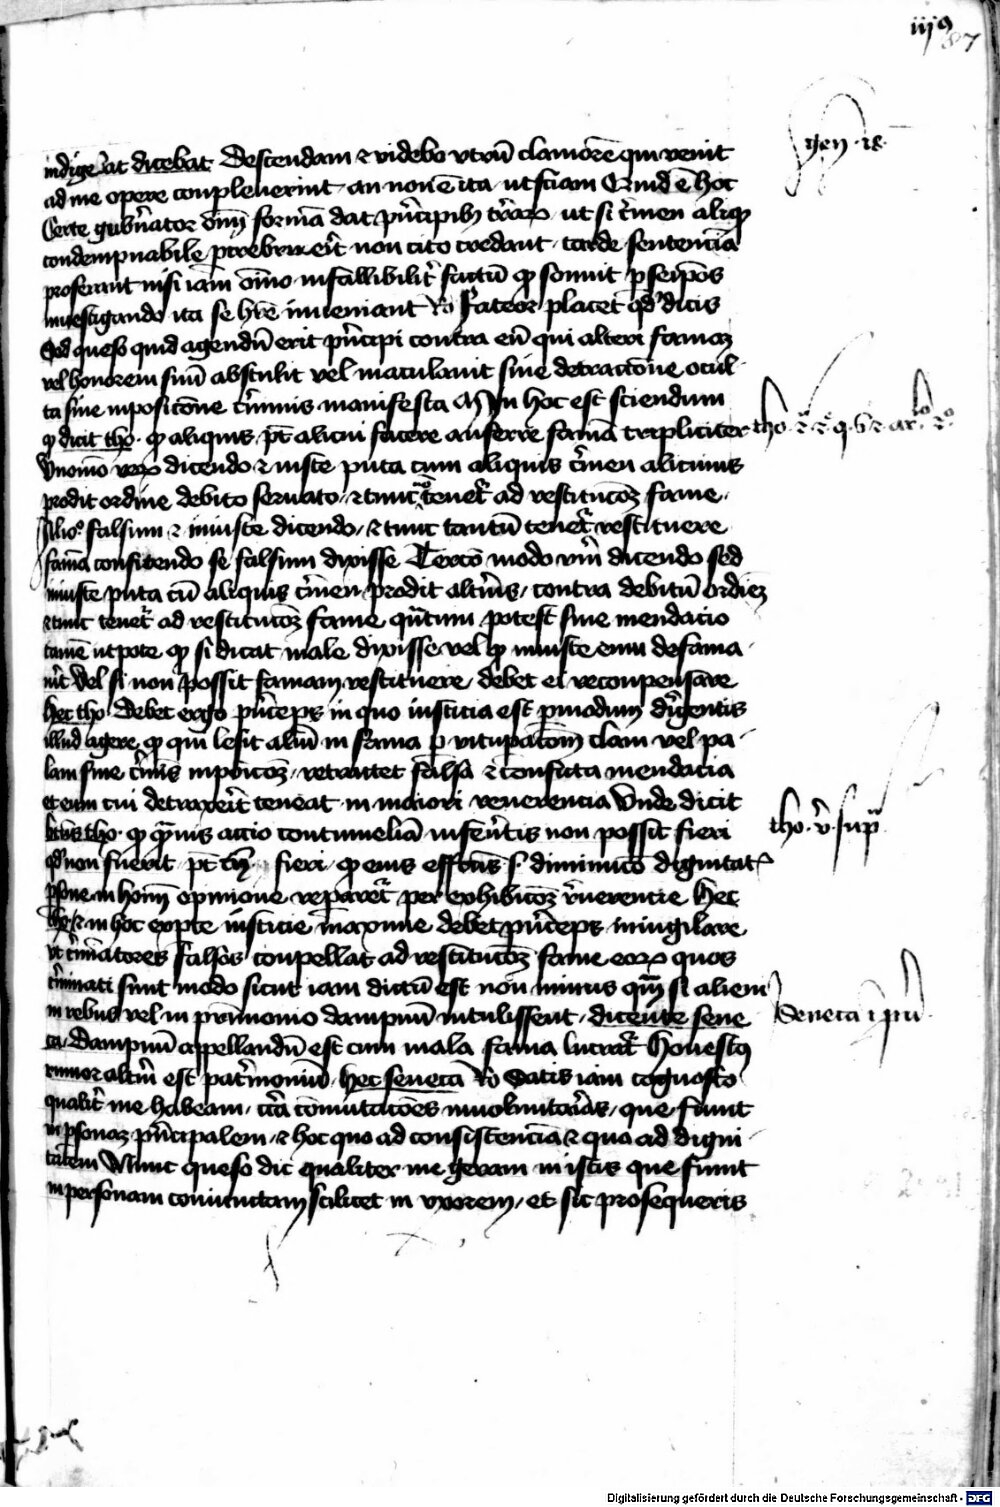 iij9
87
indigerat dicebat Descendam ⁊ videbo vtrū clamorē qui venit
gen · 18 ·
ad me opere compleuerint · an non ē ita · ut sciam Quid ē hoc
Certe gubnator oīm formā dat pncipib · ut si cmen aliqd
condempnabile non cito credant · tarde sentenciā
proferant nisi iam infallibilit factū qd
inuestigando ita se hrē inueniant Ro Fateor placet qd dicis
Sed queso quid agendū erit pncipi contra eū qui alteri famaz
vel honorem suū abstulit vel maculauit siue detractōne ocul
ta siue inposicōne cminis manifesta M In hoc est sciendum
qd dicit tho · qd aliquis pt alicui facere auferre famā tripliciter
Vnomō dicendo ⁊ iuste puta cum aliquis cmen alicuius
prodit ordine debito seruato · ⁊ tunc tenet ad restitucōz fame ·
Alio falsum ⁊ iniuste dicendo · ⁊ tunc tantū tenet restituere
famā confitendo se falsum dixisse Tercō modo vm dicendo sed
iniuste puta cū aliquis cmen prodit altius · contra debitū ordiēz
⁊ tunc tenet ad restitucōz fame qntum potest sine mendacio
tamē utpote qd si dicat male dixisse vel qd iniuste eum defama ·
uit Vel si non possit famam restituere · debet ei recompensare
hec tho · Debet ergo pnceps in quo iusticia est pmodum dirigentis
illud agere qd qui lesit aliū in fama p vitupacōem clam vel pa ·
lam siue cmis inposicōz · retractet falsa ⁊ conficta mendacia
et eum cui detraxerit teneat in maiori reuerencia Vnde dicit
btus tho · qd quis accio contumeliā inferentis non possit fieri
tho · v · sup
qd non fuerit · pt tn fieri · qd eius effectus s diminucō dignitat
psone in hoīm opinione reparet per exhibicōz reuerencie Hec
tho · ⁊ in hoc expte iusticie maxime debet pnceps inuigilare
vt cminatores falsos compellat ad restitucōz fame quos
cminati sunt modo sicut iam dictū est non minus qm si alicui
in rebus vel in prmonio dampnū intulissent · dicente sene
Seneca
ca · Dampnū appellandū est cum mala fama lucrat Honestus
rumor altm est patmoniū · hec seneca Ro Satis iam cognosco
qualit me habeam · cca cōmutacōes inuoluntarias · que sunt
in psonaz pncipalem · ⁊ hoc quo ad consistenciā ⁊ quo ad digni ·
tatem Nunc queso dic qualiter me geram in istis que sunt
in personam coniunctam scilicet in vxorem · et sic prosequeris
Digitalisierung gefördert durch die Deutsche Forschungsgemeinschaft - DFG